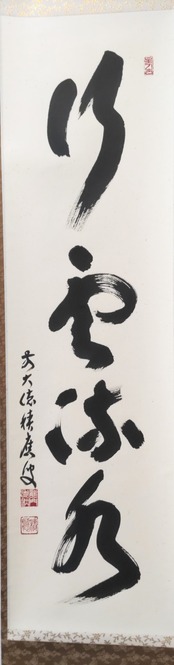 行雲流水
前大徳積應叟